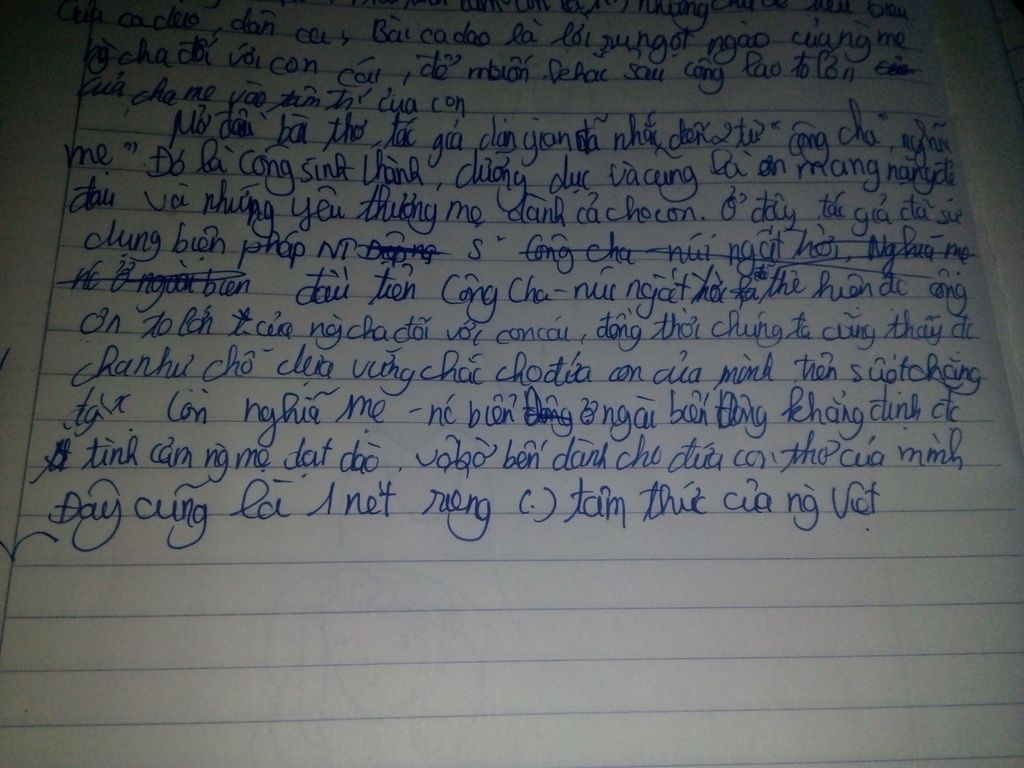 những chủ đề tiêu biểu
của ca dao, dân ca, Bài ca dao là lời ru ngọt ngào của ng mẹ
cha đối với con cái, để muốn khắc sâu công lao to lớn
của cha mẹ vào tâm trí của con
Mở đầu bài thơ, tác giả dân gian đã nhắc đến 2 từ "công cha", nghĩa
mẹ" Đó là công sinh thành, dưỡng dục và cũng là ơn mang nặng đẻ
đau và những yêu thương mẹ dành cả cho con. Ở đây tác giả đã sử
dụng biện pháp NT S² công cha - núi ngất trời, Nghĩa mẹ
nc ở ngoài biển đầu tiên Công Cha - núi ngất trời đã thể hiện đc công
ơn to lớn của ng cha đối với con cái, đồng thời chúng ta cũng thấy đc
cha như chỗ dựa vững chắc cho đứa con của mình trên suốt chặng
Còn nghĩa mẹ - nc biển ở ngoài biển Đông khẳng định đc
tình cảm ng mẹ dạt dào, vô bờ bến dành cho đứa con thơ của mình
Đây cũng là 1 nét riêng (.) tâm thức của ng Việt